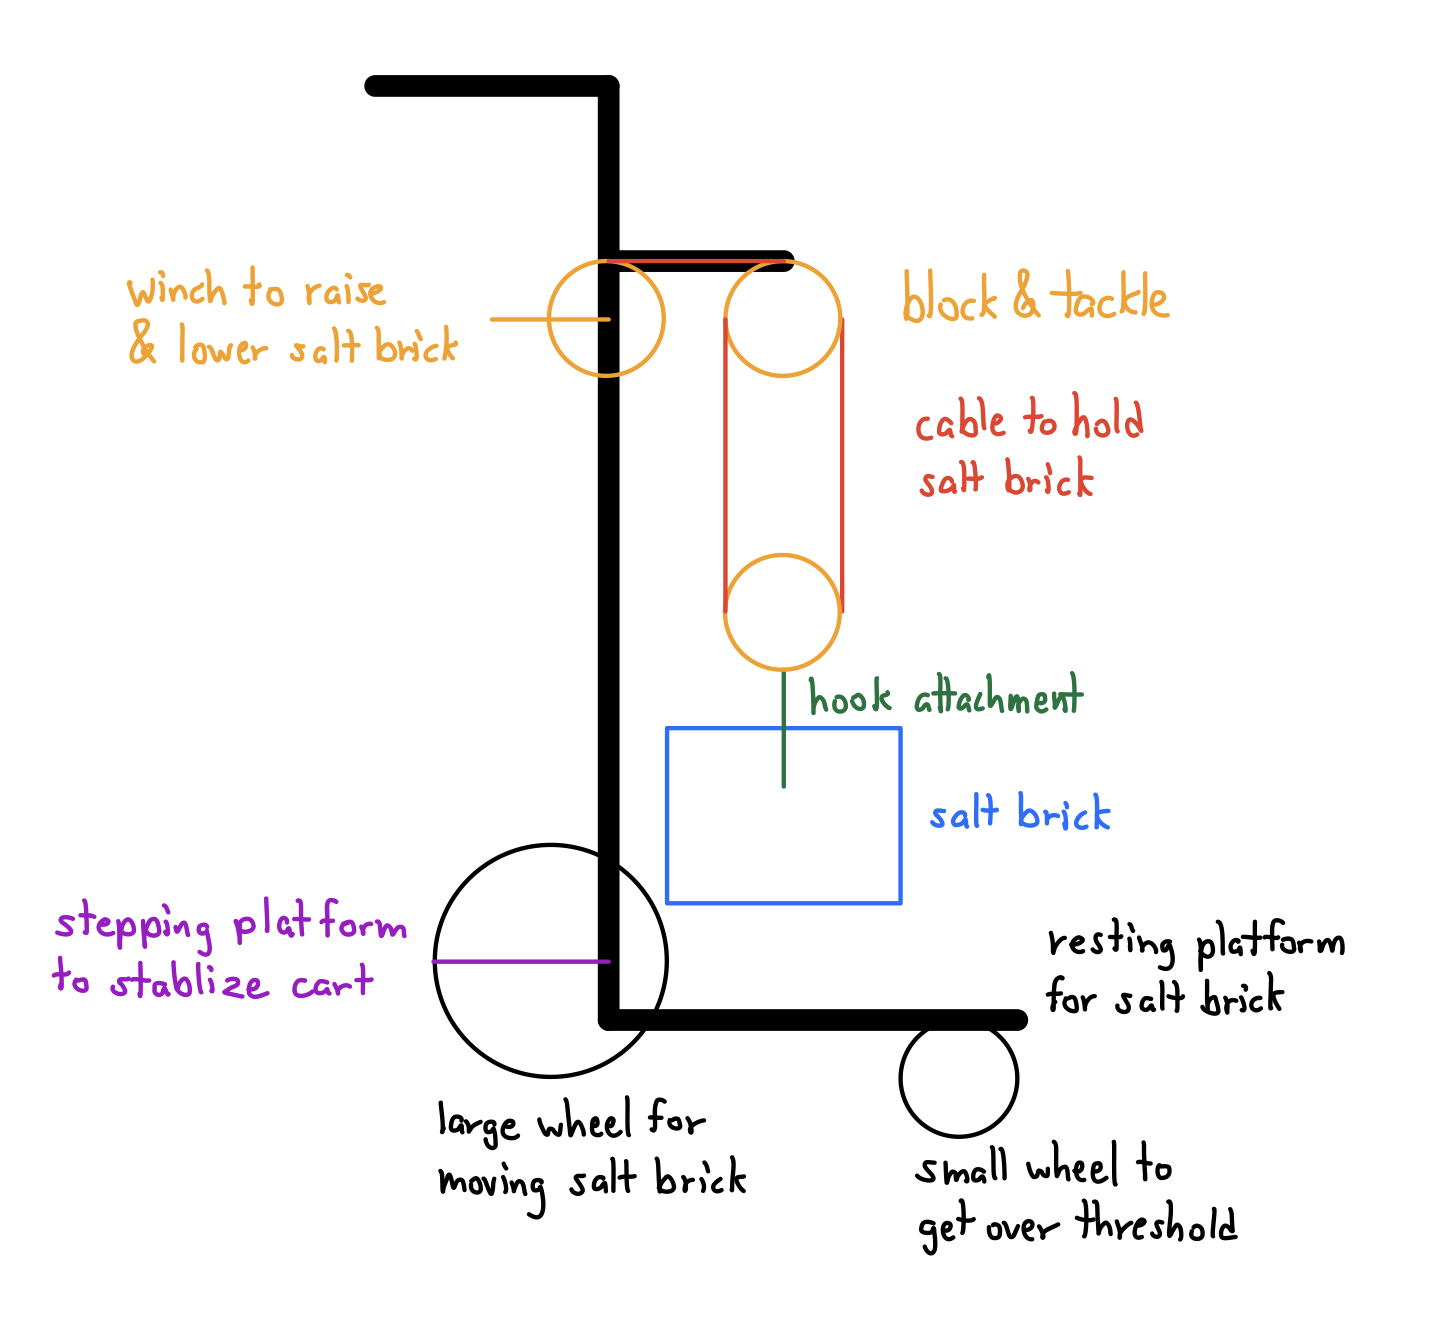 winch to raise
& lower salt brick
block & tackle
cable to hold
salt brick
hook attachment
salt brick
stepping platform
to stablize cart
resting platform
for salt brick
large wheel for
moving salt brick
small wheel to
get over threshold